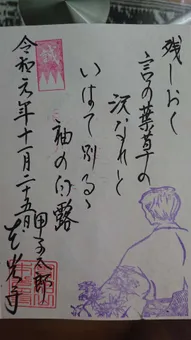 残しおく
言の葉草の
沢なれと
いはて別るゝ
袖の白露
甲子太郎
令和元年十一月二十五日
本光寺
誠